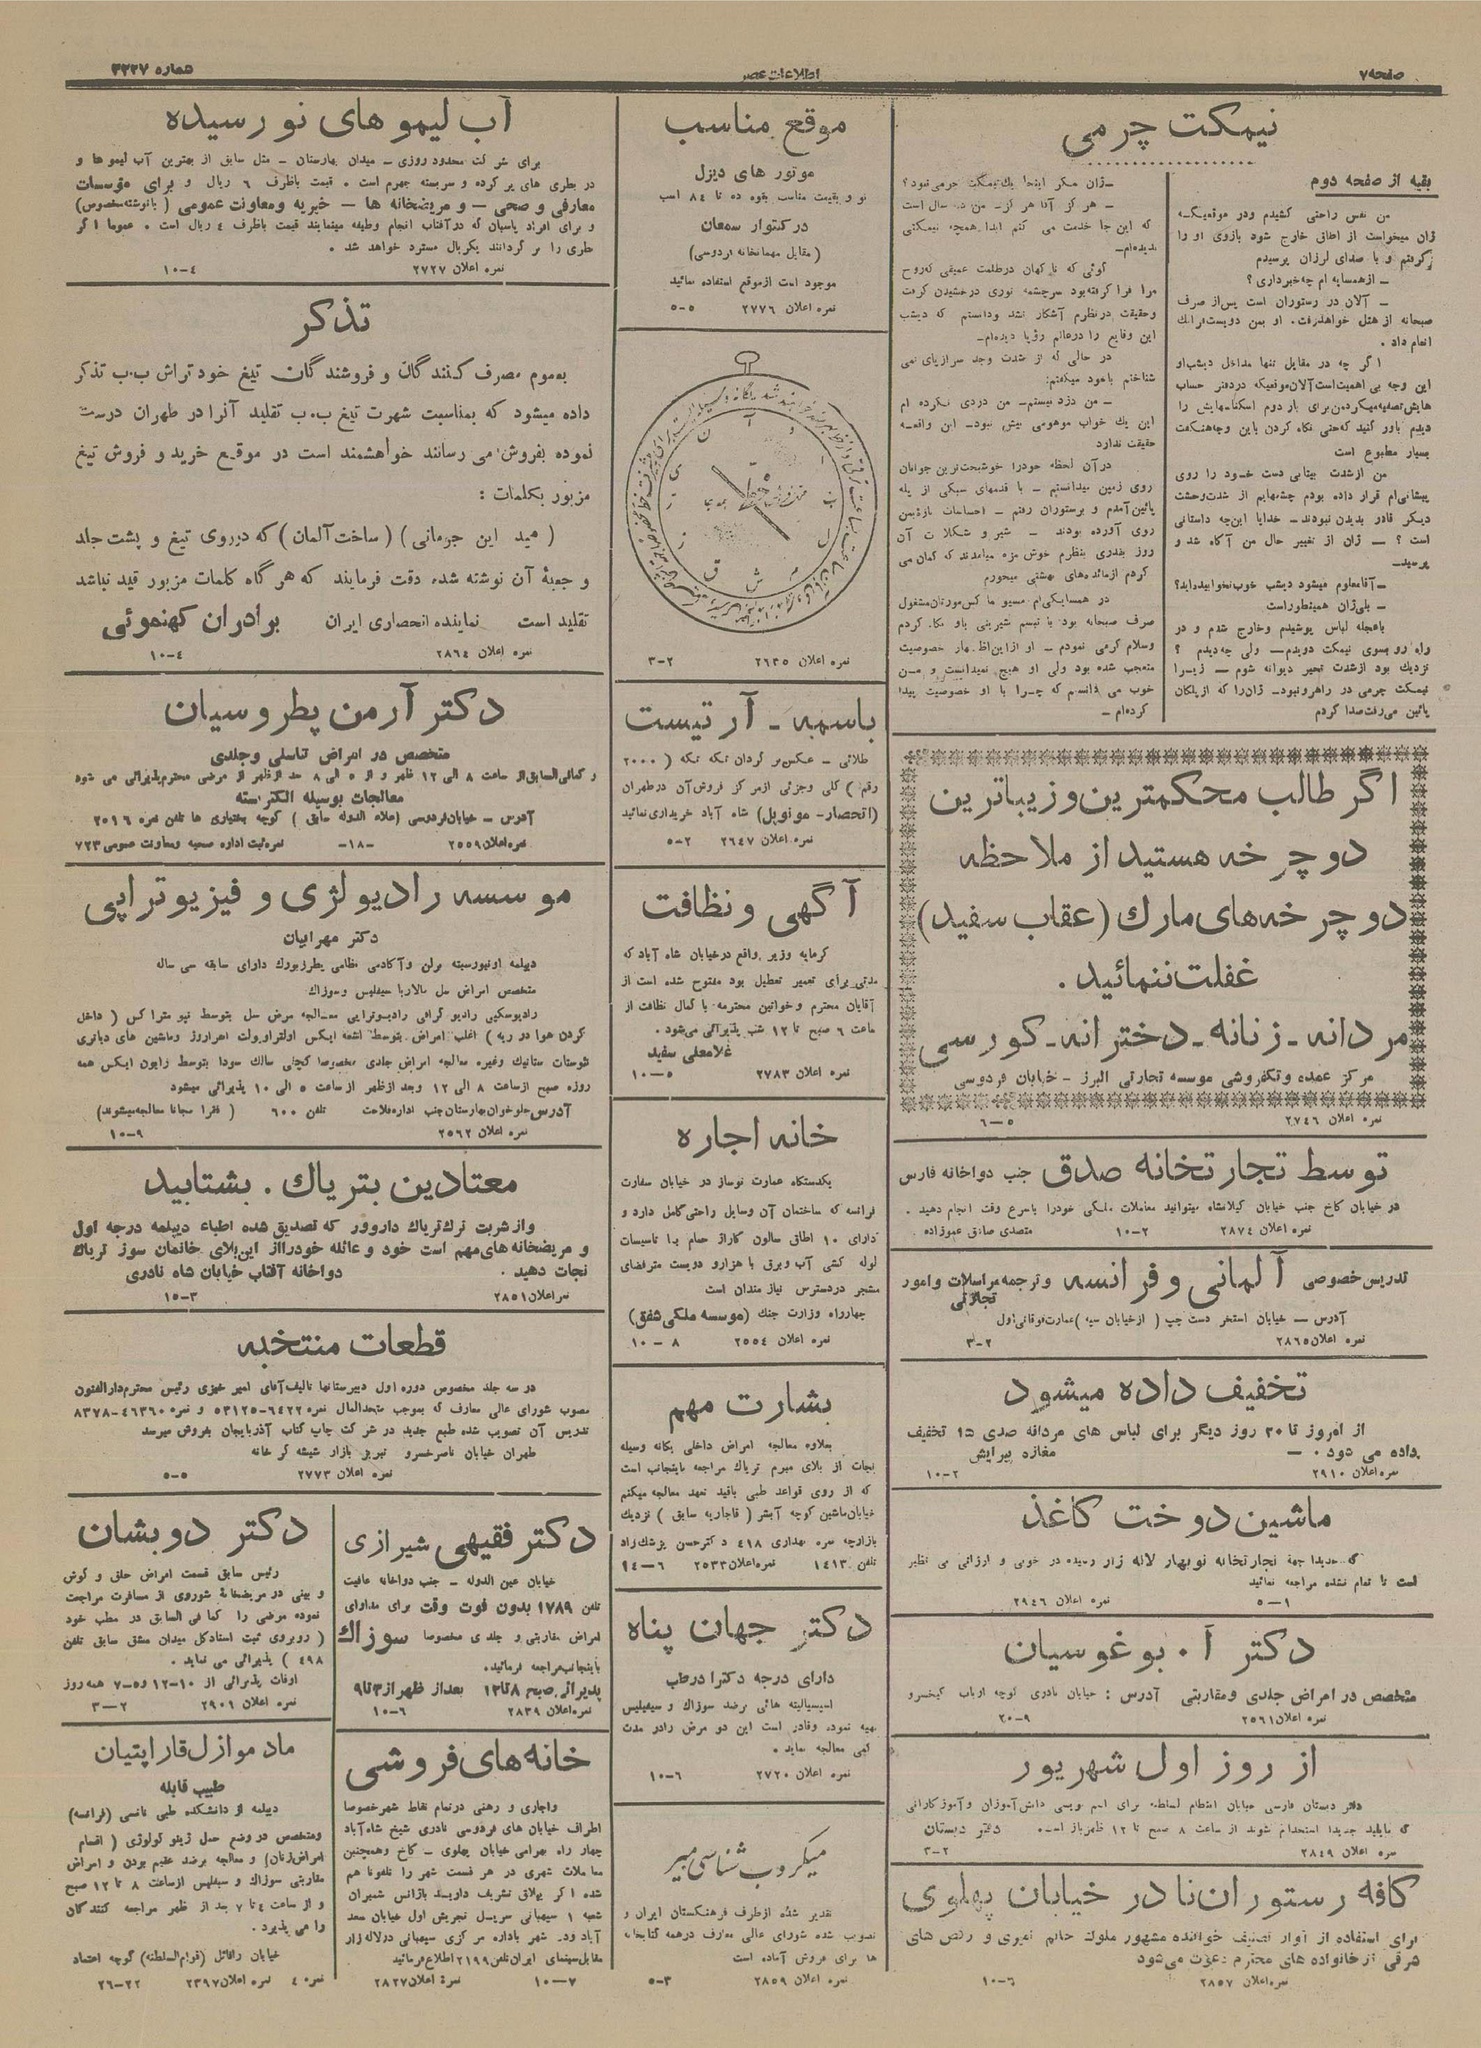 صفحه ۷
اطلاعات عصر
شماره ۳۲۲۷
نیمکت چرمی
بقیه از صفحه دوم
من نفس راحتی کشیدم ودر موقعیکه
ژان میخواست از اطاق خارج شود بازوی او را
گرفتم و با صدای لرزان پرسیدم
ـ ازهمسایه ام چه خبرداری ؟
ـ آلان در رستوران است پس از صرف
صبحانه از هتل خواهد رفت. او بمن دویست فرانك
انعام داد .
اگر چه در مقابل تنها مداخل دیشب او
این وجه بی اهمیت است آلان موقعیکه دردفتر حساب
هایش تصفیه میکرد من برای بار دوم اسکناسهایش را
دیدم باور کنید که حتی نگاه کردن باین وجه هنگفت
بسیار مطبوع است
من ازشدت بیتابی دست خود را روی
پیشانی ام قرار داده بودم چشمهایم از شدت وحشت
دیگر قادر بدیدن نبودند ـ خدایا این چه داستانی
است ؟ ـ ژان از تغییر حال من آگاه شد و
پرسید ـ
ـ آقا معلوم میشود دیشب خوب نخوابیده اید؟
ـ بلی ژان همینطور است
باعجله لباس پوشیدم وخارج شدم و در
راه رو بسوی نیمکت دویدم ـ ولی چه دیدم ؟
نزدیك بود ازشدت تحیر دیوانه شوم ـ زیرا
نیمکت چرمی در راهرو نبود ـ ژان را که از پلکان
پائین می رفت صدا کردم
ـ ژان مگر اینجا یك نیمکت چرمی نبود؟
ـ هرگز آقا هرگز ـ من ده سال است
که این جا خدمت می کنم ابدا همچه نیمکتی
ندیده ام ـ
گوئی که ناگهان درظلمت عمیقی که روح
مرا فرا گرفته بود سرچشمه نوری درخشیدن گرفت
وحقیقت درنظرم آشکار شد ودانستم که دیشب
این وقایع را درعالم رؤیا دیده ام ـ
در حالی که از شدت وجد سرازپای نمی
شناختم باخود میگفتم:
ـ من دزد نیستم ـ من دزدی نکرده ام
این یك خواب موهومی بیش نبود ـ این واقعه
حقیقت ندارد
درآن لحظه خودرا خوشبخت ترین جوانان
روی زمین میدانستم ـ با قدمهای سبکی از پله
پائین آمدم و برستوران رفتم ـ احساسات بازبمن
روی آورده بودند ـ شیر و شکلات آن
روز بقدری بنظرم خوش مزه میآمدند که گمان می
کردم ازمائده های بهشتی میخورم
در همسایگی ام مسیو ماکس مورتان مشغول
صرف صبحانه بود با تبسم شیرینی باو نگاه کردم
وسلام گرمی نمودم ـ او از این اظهار خصوصیت
متعجب شده بود ولی او هیچ نمیدانست و من
خوب می دانستم که چرا با او خصوصیت پیدا
کرده ام ـ
اگر طالب محکمترین وزیباترین
دوچرخه هستید از ملاحظه
دوچرخه های مارك (عقاب سفید)
غفلت ننمائید .
مردانه ـ زنانه ـ دخترانه ـ کورسی
مرکز عمده وتکفروشی موسسه تجارتی البرز ـ خیابان فردوسی
نمره اعلان ۲۷۴۶ ۵ـ۶
توسط تجارتخانه صدق جنب دواخانه فارس
در خیابان کاخ جنب خیابان کیلانشاه میتوانید معاملات ملکی خودرا باسرع وقت انجام دهید .
نمره اعلان ۲۸۷۴ ۲ـ۱۰ متصدی صادق عموزاده
تدریس خصوصی آلمانی وفرانسه وترجمه مراسلات وامور تجارتی
آدرس ـ خیابان استخر دست چپ ( از خیابان سپه ) عمارت فوقانی اول
نمره اعلان ۲۸۶۵ ۲ـ۳
تخفیف داده میشود
از امروز تا ۲۰ روز دیگر برای لباس های مردانه صدی ۱۵ تخفیف
داده می شود . ـ مغازه پیرایش
نمره اعلان ۲۹۱۰ ۲ـ۱۰
ماشین دوخت کاغذ
که جدیدا جهة تجارتخانه نوبهار لاله زار رسیده در خوبی و ارزانی بی نظیر
است تا تمام نشده مراجعه نمائید
نمره اعلان ۲۹۴۶ ۱ـ۵
دکتر آ . بوغوسیان
متخصص در امراض جلدی ومقاربتی آدرس : خیابان نادری کوچه ارباب کیخسرو
نمره اعلان ۲۵۶۱ ۹ـ۲۰
از روز اول شهریور
دفتر دبستان فارسی خیابان انتظام السلطنه برای اسم نویسی دانش آموزان و آموزگارانی
که مایلند جدیدا استخدام شوند از ساعت ۸ صبح تا ۱۲ ظهر باز است. دفتر دبستان
نمره اعلان ۲۸۴۹ ۲ـ۳
کافه رستوران نادر خیابان پهلوی
برای استفاده از آواز لطیف خواننده مشهور ملوك خانم نصیری و رقص های
شرقی از خانواده های محترم دعوت می شود
نمره اعلان ۲۸۵۷ ۶ـ۱۰
موقع مناسب
موتور های دیزل
نو و بقیمت مناسب بقوه ده تا ۸۴ اسب
در کنتوار سمعان
(مقابل مهمانخانه فردوسی)
موجود است از موقع استفاده نمائید
نمره اعلان ۲۷۷۶ ۵ـ۵
نمره اعلان ۲۶۳۵ ۲ـ۳
باسمبه ـ آرتیست
طلائی ـ عکس بر گردان تکه تکه ( ۲۰۰۰
رقم ) کلی وجزئی از مرکز فروش آن در طهران
(انحصار ـ مونوپل) شاه آباد خریداری نمائید
نمره اعلان ۲۶۴۷ ۲ـ۵
آگهی ونظافت
گرمابه وزیر واقع در خیابان شاه آباد که
مدتی برای تعمیر تعطیل بود مفتوح شده است از
آقایان محترم وخواتین محترمه با کمال نظافت از
ساعت ۶ صبح تا ۱۲ شب پذیرائی می شود .
غلامعلی سفید
نمره اعلان ۲۷۸۳ ۵ـ۱۰
خانه اجاره
یکدستگاه عمارت نوساز در خیابان سفارت
فرانسه که ساختمان آن وسایل راحتی کامل دارد و
دارای ۱۰ اطاق سالون گاراژ حمام با تاسیسات
لوله کشی آب وبرق با هزار و دویست متر فضای
مشجر دردسترس نیاز مندان است
چهارراه وزارت جنك (موسسه ملکی شفق)
نمره اعلان ۲۵۵۴ ۸ ـ ۱۰
بشارت مهم
بعلاوه معالجه امراض داخلی یگانه وسیله
نجات از بلای مبرم تریاك مراجعه باینجانب است
که از روی قواعد طبی باقید تعهد معالجه میکنم
خیابان ماشین کوچه آبشر ( قاجاریه سابق ) نزدیك
بازارچه نمره بهداری ۴۱۸ دکتر حسن پزشك زاد
تلفن ۱۴۱۳ نمره اعلان ۲۵۳۳ ۶ـ۱۴
دکتر جهان پناه
دارای درجه دکترا درطب
اسپسیالیته هائی برضد سوزاك و سیفیلیس
تهیه نموده وقادر است این دو مرض را در مدت
کمی معالجه نماید .
نمره اعلان ۲۷۲۰ ۶ـ۱۰
میکروب شناسی میر
تقدیر شده از طرف فرهنگستان ایران و
تصویب شده شورای عالی معارف در همه کتابخانه
ها برای فروش آماده است
نمره اعلان ۲۸۵۹ ۳ـ۵
آب لیموهای نورسیده
برای شرکت محدود روزی ـ میدان بهارستان ـ مثل سابق از بهترین آب لیموها و
در بطری های پر کرده و سربسته جهرم است . قیمت باظرف ۶ ریال و برای مؤسسات
معارفی و صحی ـ و مریضخانه ها ـ خیریه ومعاونت عمومی (بانوشته مخصوص)
و برای افراد پاسبان که در آفتاب انجام وظیفه مینمایند قیمت باظرف ۴ ریال است . عموما اگر
بطری را بر گردانند یکریال مسترد خواهد شد .
نمره اعلان ۲۷۲۷ ۴ـ۱۰
تذکر
بعموم مصرف کنندگان و فروشندگان تیغ خودتراش ب.ب تذکر
داده میشود که بمناسبت شهرت تیغ ب.ب تقلید آنرا در طهران درست
نموده بفروش می رسانند خواهشمند است در موقع خرید و فروش تیغ
مزبور بکلمات :
( مید این جرمانی ) ( ساخت آلمان ) که درروی تیغ و پشت جلد
و جعبهٔ آن نوشته شده دقت فرمایند که هر گاه کلمات مزبور قید نباشد
تقلید است نماینده انحصاری ایران برادران کهنموئی
نمره اعلان ۲۸۶۴ ۴ـ۱۰
دکتر آرمن پطروسیان
متخصص در امراض تناسلی وجلدی
کمافی السابق از ساعت ۸ الی ۱۲ ظهر و از ۵ الی ۸ بعد ازظهر از مرضی محترم پذیرائی می شود
معالجات بوسیله الکتریسته
آدرس ـ خیابان فردوسی (علاء الدوله سابق ) کوچه بختیاری ها تلفن نمره ۲۰۱۶
نمره اعلان ۲۵۵۹ ـ۱۸ـ نمره ثبت اداره صحیه ومعاونت عمومی ۷۲۳
موسسه رادیولژی و فیزیوتراپی
دکتر مهرابیان
دیپلمه اونیورسیته برلن وآکادمی نظامی پطرزبورك دارای سابقه سی ساله
متخصص امراض سل مالاریا سیفلیس وسوزاك
رادیوسکپی رادیو گرافی رادیوتراپی معالجه مرض سل بتوسط نیو متراکس ( داخل
کردن هوا در ریه ) اغلب امراض بتوسط اشعه ایکس اولتراویولت اهرارور وماشین های دیاترمی
توستات ستاتیك وغیره معالجه امراض جلدی مخصوصا کچلی سالك سودا بتوسط رایون ایکس همه
روزه صبح از ساعت ۸ الی ۱۲ وبعد ازظهر از ساعت ۵ الی ۱۰ پذیرائی میشود
آدرس جلو خوان بهارستان جنب اداره فلاحت تلفن ۶۰۰ ( فقرا مجانا معالجه میشوند )
نمره اعلان ۲۵۶۲ ۹ـ۱۰
معتادین بتریاك . بشتابید
واز شربت ترك تریاك داروور که تصدیق شده اطباء دیپلمه درجه اول
و مریضخانه های مهم است خود و عائله خودرا از این بلای خانمان سوز تریاك
نجات دهید . دواخانه آفتاب خیابان شاه نادری
نمره اعلان ۲۸۵۱ ۳ـ۱۵
قطعات منتخبه
در سه جلد مخصوص دوره اول دبیرستانها تالیف آقای امیر خیزی رئیس محترم دارالفنون
مصوب شورای عالی معارف که بموجب متحدالمال نمره ۶۴۲۲ـ۵۳۱۲۵ و نمره ۴۶۳۶۰ـ۸۳۷۸
تدریس آن تصویب شده طبع جدید در شرکت چاپ کتاب آذربایجان بفروش میرسد
طهران خیابان ناصر خسرو تبریز بازار شیشه گر خانه
نمره اعلان ۲۷۷۳ ۵ـ۵
دکتر فقیهی شیرازی
خیابان عین الدوله ـ جنب دواخانه عافیت
تلفن ۱۷۸۹ بدون فوت وقت برای مداوای
امراض مقاربتی و جلدی مخصوصا سوزاك
باینجانب مراجعه فرمائید.
پذیرائی صبح ۸ تا ۱۲ بعد از ظهر از ۳ تا ۹
نمره اعلان ۲۸۳۹ ۶ـ۱۰
خانه های فروشی
واجاری و رهنی در تمام نقاط شهر خصوصا
اطراف خیابان های فردوسی نادری شیخ شاه آباد
چهار راه بهرامی خیابان پهلوی ـ کاخ وهمچنین
معاملات شهری در هر قسمت شهر را تلفونا هم
شده اگر ییلاق تشریف دارید باژانس شمیران
شعبه ۱ سپهبانی سرپل تجریش اول خیابان سعد
آباد ودر شهر باداره مرکزی سپهبانی در لاله زار
مقابل سینمای ایران تلفن ۲۱۹۹ اطلاع فرمائید
نمره اعلان ۲۸۲۷ ۷ـ۱۰
دکتر دوبشان
رئیس سابق قسمت امراض حلق و گوش
و بینی در مریضخانهٔ شوروی از مسافرت مراجعت
نموده مرضی را کما فی السابق در مطب خود
( روبروی ثبت اسناد کل میدان مشق سابق تلفن
۴۹۸ ) پذیرائی می نماید .
اوقات پذیرائی از ۱۰ـ۱۲ و ۵ـ۷ همه روز
نمره اعلان ۲۹۰۱ ۲ـ۳
مادموازل قاراپتیان
طبیب قابله
دیپلمه از دانشکده طبی نانسی (فرانسه)
ومتخصص در وضع حمل ژینو کولوژی ( اقسام
امراض زنان) و معالجه برضد عقیم بودن و امراض
مقاربتی سوزاك و سیفلیس از ساعت ۸ تا ۱۲ صبح
و از ساعت ۴ تا ۷ بعد از ظهر مراجعه کنندگان
را می پذیرد .
خیابان رافائل (قوام السلطنه) کوچه اعتماد
نمره ۴ نمره اعلان ۲۳۹۷ ۲۲ـ۲۶